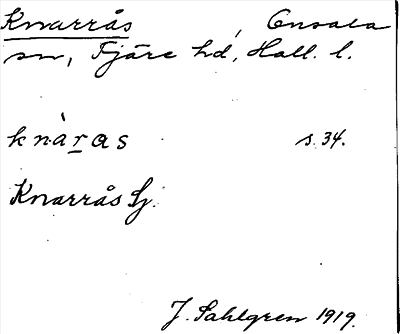 Knarrås, Onsala
sn, Fjäre hd, Hall. l.
knàras s. 34.
Knarrås Lj.
J. Sahlgren 1919.